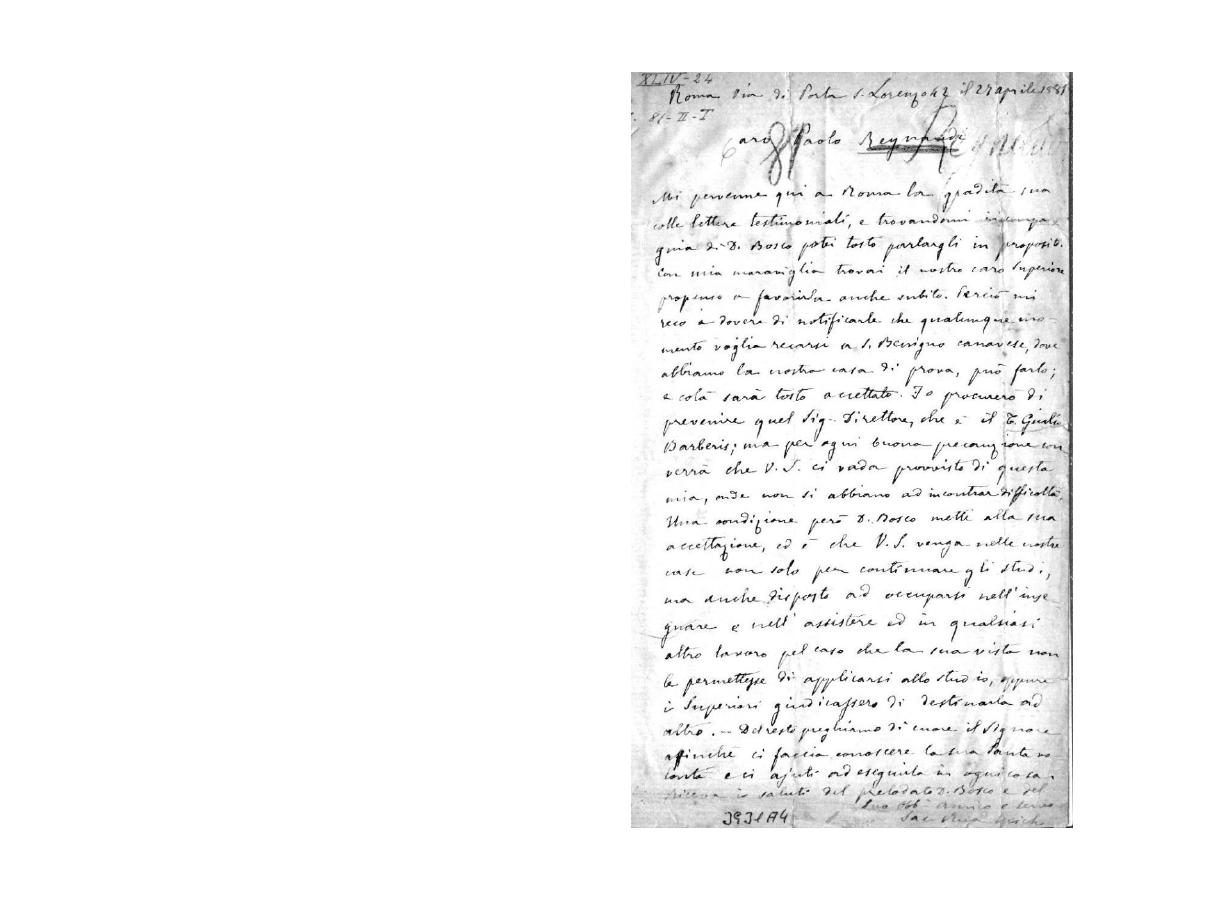 XLIV-24
Roma Via di Porta S. Lorenzo 42 il 27 aprile 1881
81-II-I
Caro D. Paolo Reynaudi
Mi pervenne qui a Roma la gradita sua
colle lettere testimoniali, e trovandomi in compa
gnia di D. Bosco potei tosto parlargli in proposito.
Con mia maraviglia trovai il nostro caro Superiore
propenso a favorirla anche subito. Perciò mi
reco a dovere di notificarle che qualunque mo-
mento voglia recarsi a S. Benigno canavese, dove
abbiamo la nostra casa di prova, può farlo;
e colà sarà tosto accettato. Io procurerò di
prevenire quel Sig. Direttore, che è il T. Giulio
Barberis; ma per ogni buona precauzione con
verrà che V. S. ci vada provvisto di questa
mia, onde non si abbiano ad incontrar difficoltà.
Una condizione però D. Bosco mette alla sua
accettazione, ed è che V. S. venga nelle nostre
case non solo per continuare gli studi,
ma anche disposto ad occuparsi nell'inse
gnare e nell'assistere ed in qualsiasi
altro lavoro pel caso che la sua vista non
le permettesse di applicarsi allo studio, oppure
i Superiori giudicassero di destinarla ad
altro. - Del resto preghiamo di cuore il Signore
affinchè ci faccia conoscere la sua santa vo
lontà e ci ajuti ad eseguirla in ogni cosa.
Riceva i saluti del prelodato D. Bosco e del
Suo obb. amico e servo
Sac. Rua Mich.
3931A4